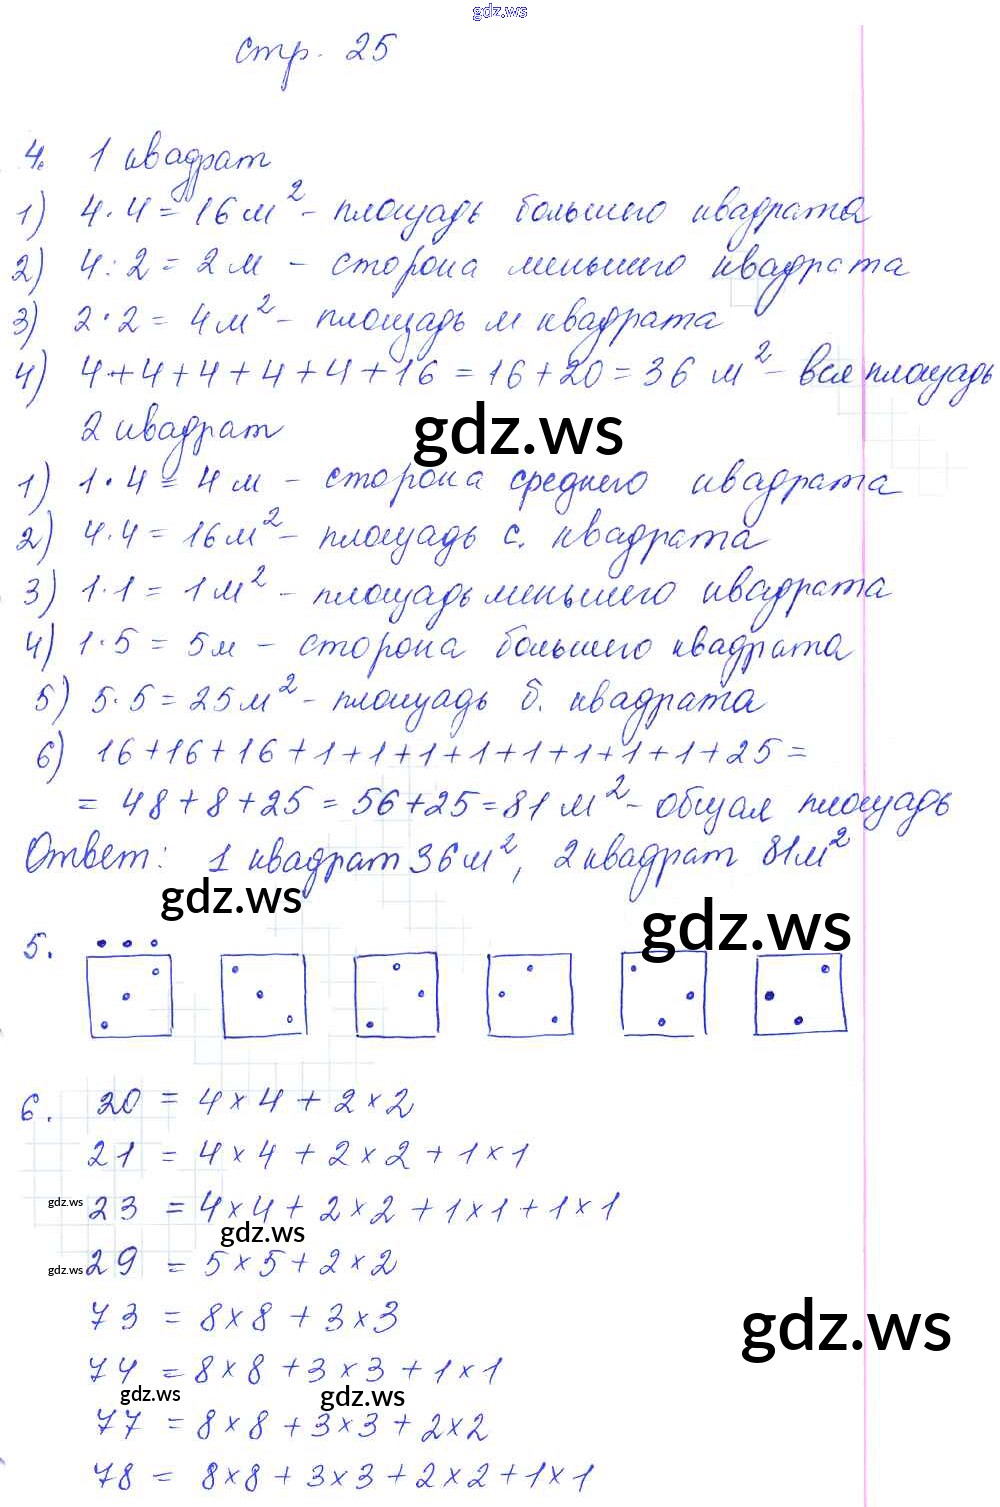 gdz.ws
стр. 25
4. 1 квадрат
1) 4·4=16м²- площадь большего квадрата
2) 4:2=2м - сторона меньшего квадрата
3) 2·2=4м²- площадь м квадрата
4) 4+4+4+4+4+16=16+20=36 м²- вся площадь
2 квадрат
gdz.ws
1) 1·4=4м - сторона среднего квадрата
2) 4·4=16м²- площадь с. квадрата
3) 1·1=1м²- площадь меньшего квадрата
4) 1·5=5м - сторона большего квадрата
5) 5·5=25м²- площадь б. квадрата
6) 16+16+16+1+1+1+1+1+1+1+1+25=
=48+8+25=56+25=81м²- общая площадь
Ответ: 1 квадрат 36м², 2 квадрат 81м²
gdz.ws
gdz.ws
5.
6. 20 = 4×4+2×2
21 = 4×4+2×2+1×1
gdz.ws
23 = 4×4+2×2+1×1+1×1
gdz.ws
gdz.ws
29 = 5×5+2×2
73 = 8×8+3×3
gdz.ws
74 = 8×8+3×3+1×1
gdz.ws
gdz.ws
77 = 8×8+3×3+2×2
78 = 8×8+3×3+2×2+1×1